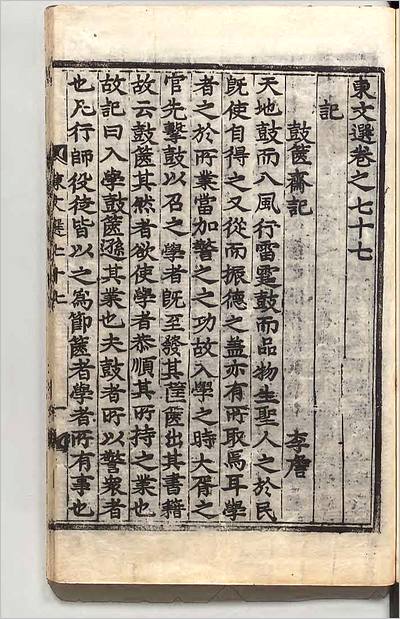 東文選卷之七十七
記
鼓篋齋記
李詹
天地鼓而八風行雷霆鼓而品物生聖人之於民
旣使自得之又從而振德之盖亦有所取焉耳學
者之於所業當加警之之功故入學之時大胥之
官先擊鼓以召之學者旣至發其筐篋出其書籍
故云鼓篋其然者欲使學者恭順其所持之業也
故記曰入學鼓篋遜其業也夫鼓者所以警衆者
也凡行師役徒皆以之爲節篋者學者所有事也
東文選七十七
一